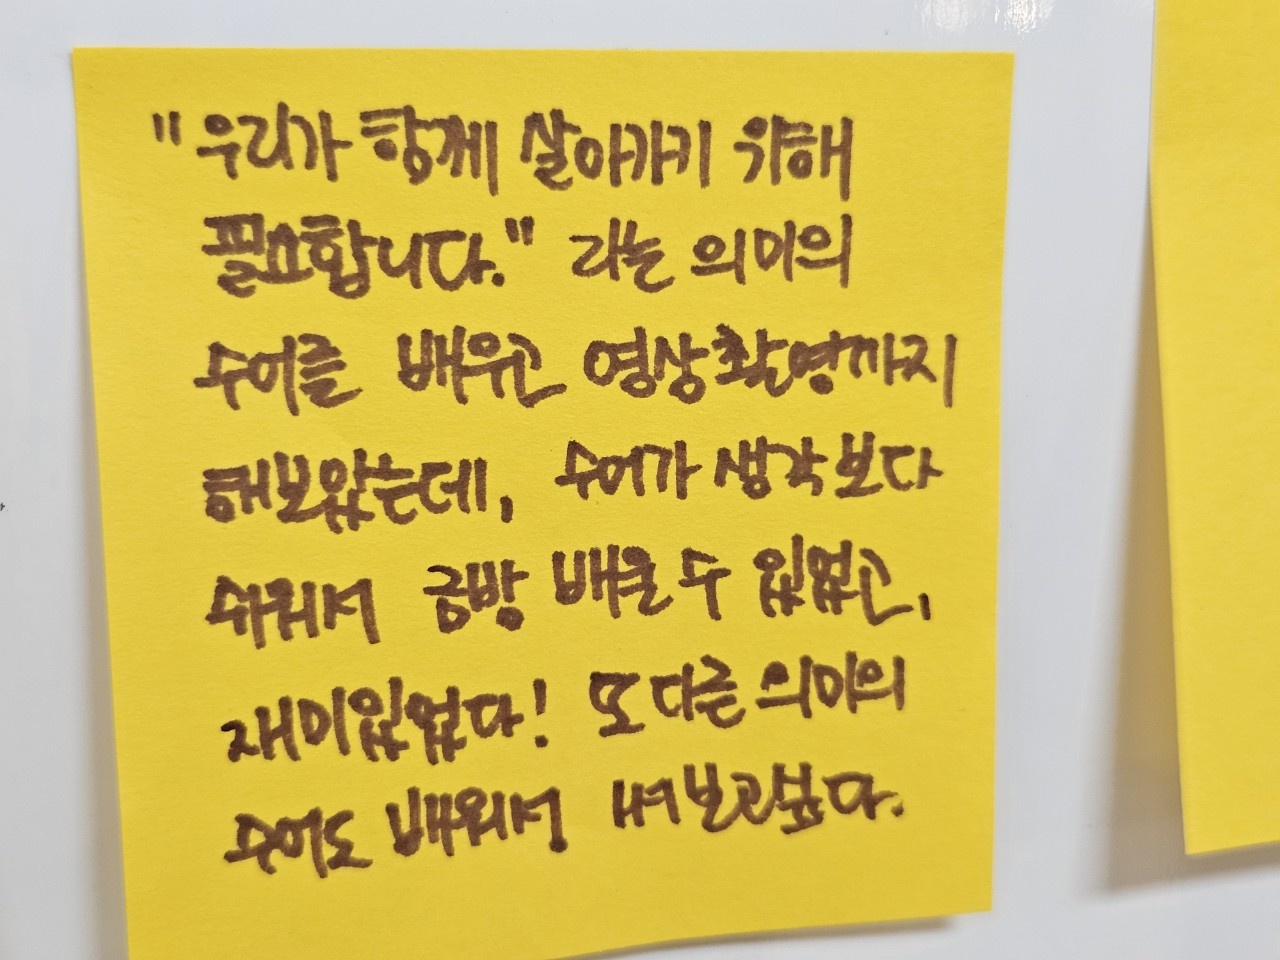 "우리가 함께 살아가기 위해
필요합니다." 라는 의미의
수어를 배우고 영상촬영까지
해보았는데, 수어가 생각보다
쉬워서 금방 배울 수 있었고,
재미있었다! 또 다른 의미의
수어도 배워서 써보고싶다.